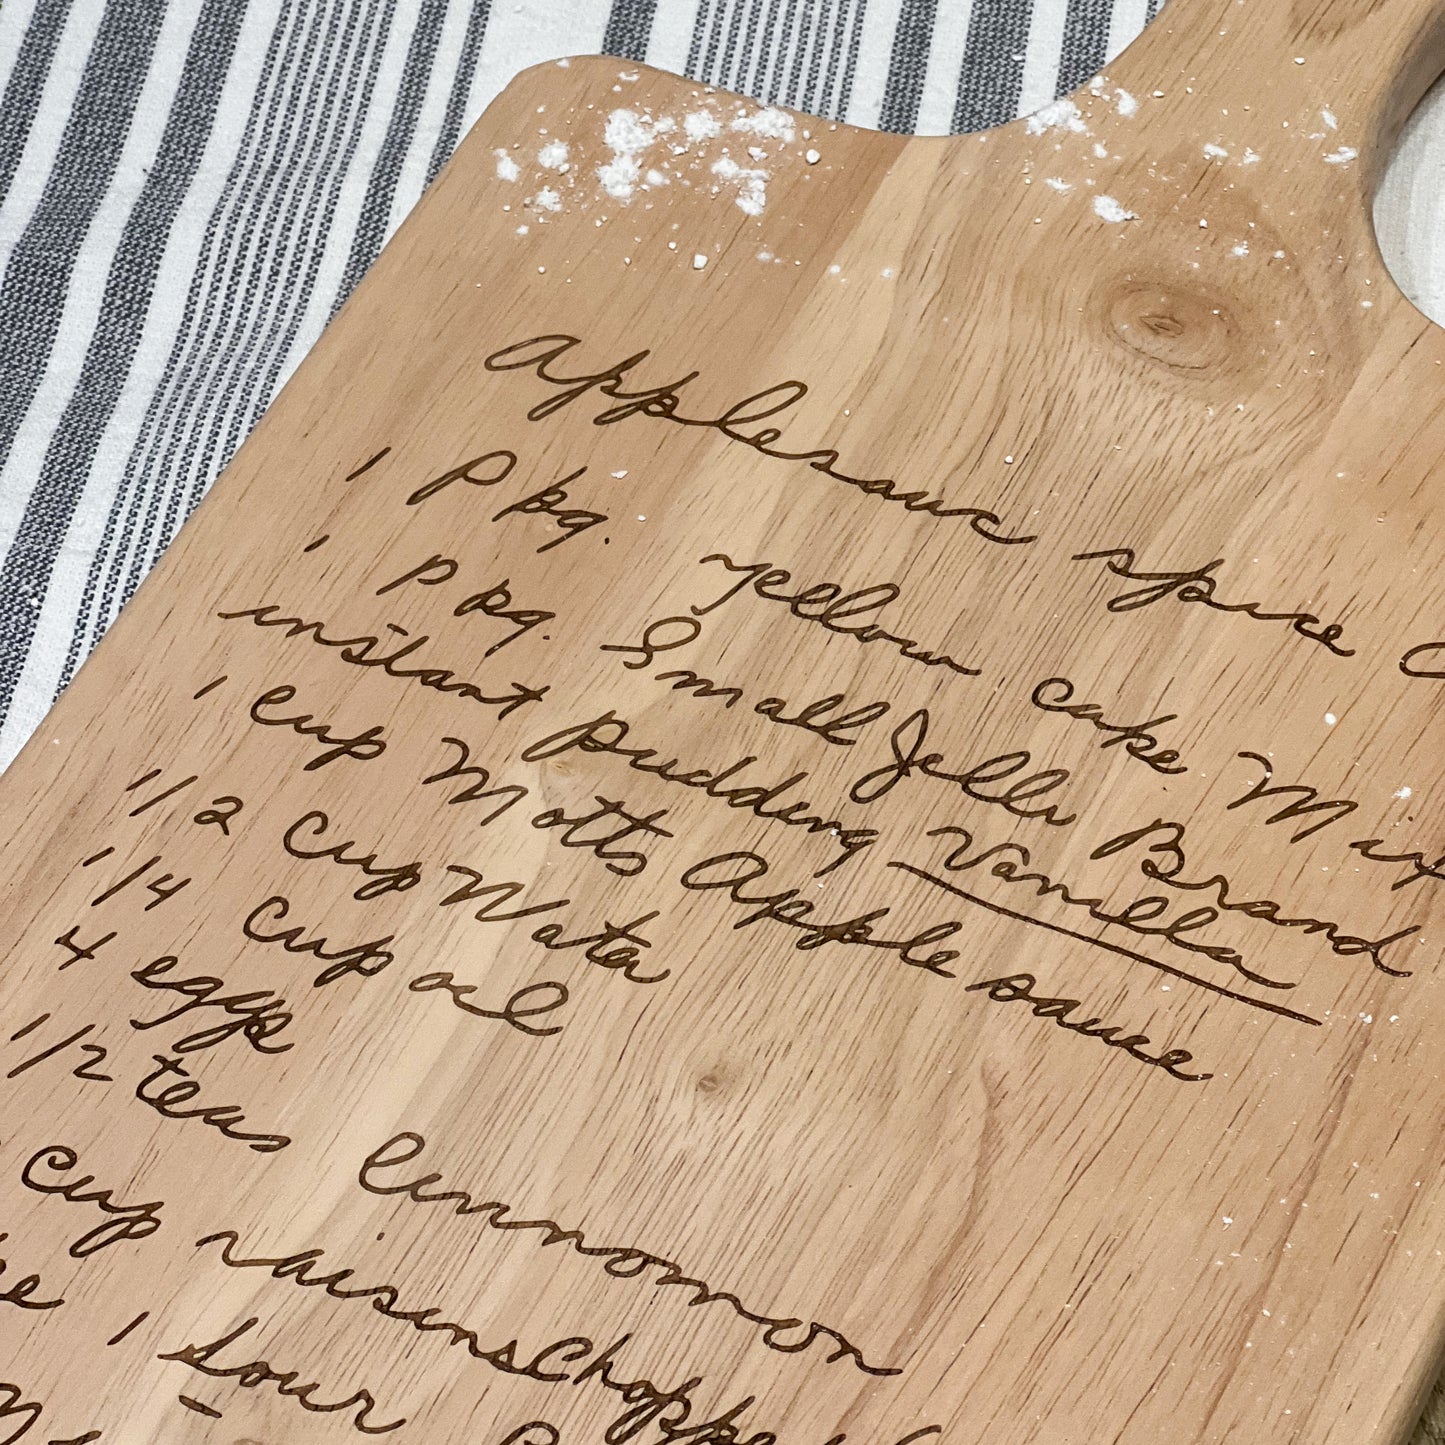 Applesauce spice
1 P pkg. yellow cake Mix
1 P pkg. Small Jello Brand
instant pudding Vanilla
1 cup Motts Apple sauce
1/2 cup Water
1/4 cup oil
4 eggs
1/2 teas Cinnomon
cup raisins Chopped
1 Sour